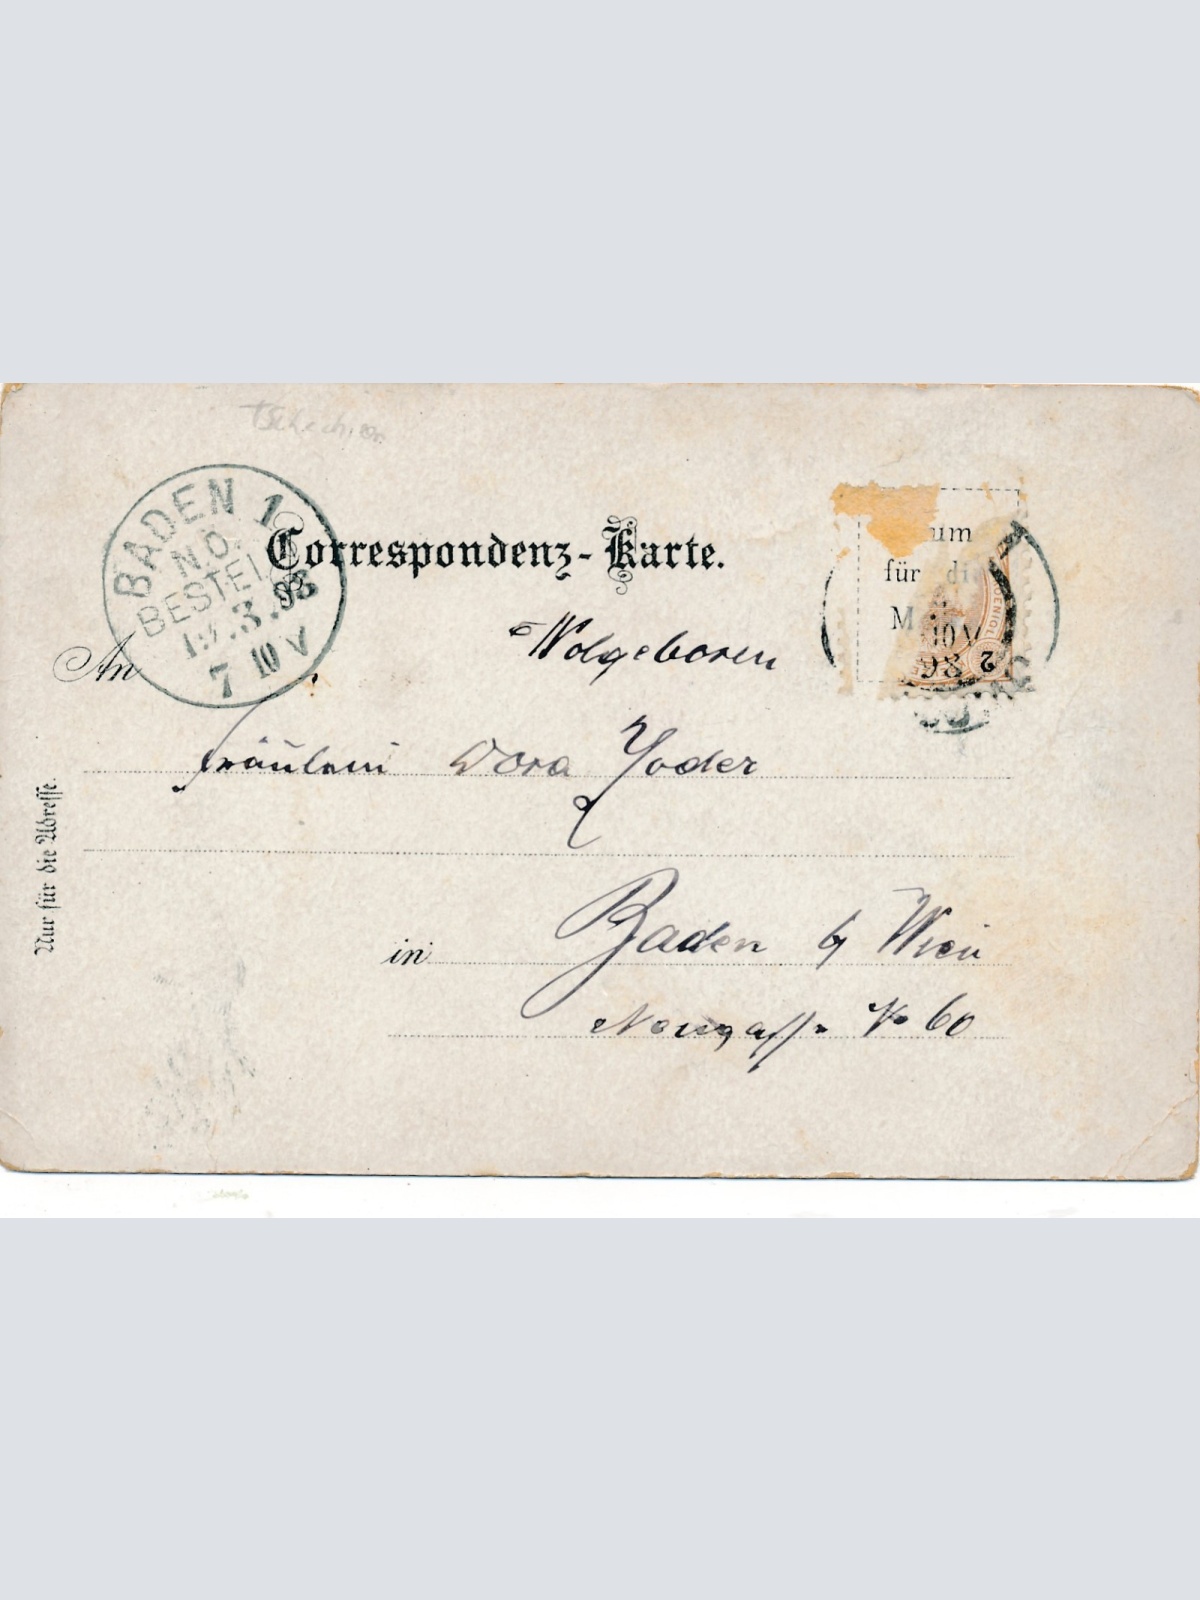 BADEN 1
N.Ö.
BESTELL
.3.98
7 10 V
Correspondenz-Karte.
um
für die
M
10 V
98
2
An
Wolgeboren
Fräulein Dora Yoder
in Baden b/ Wien
Neugasse No 60
Nur für die Adresse.